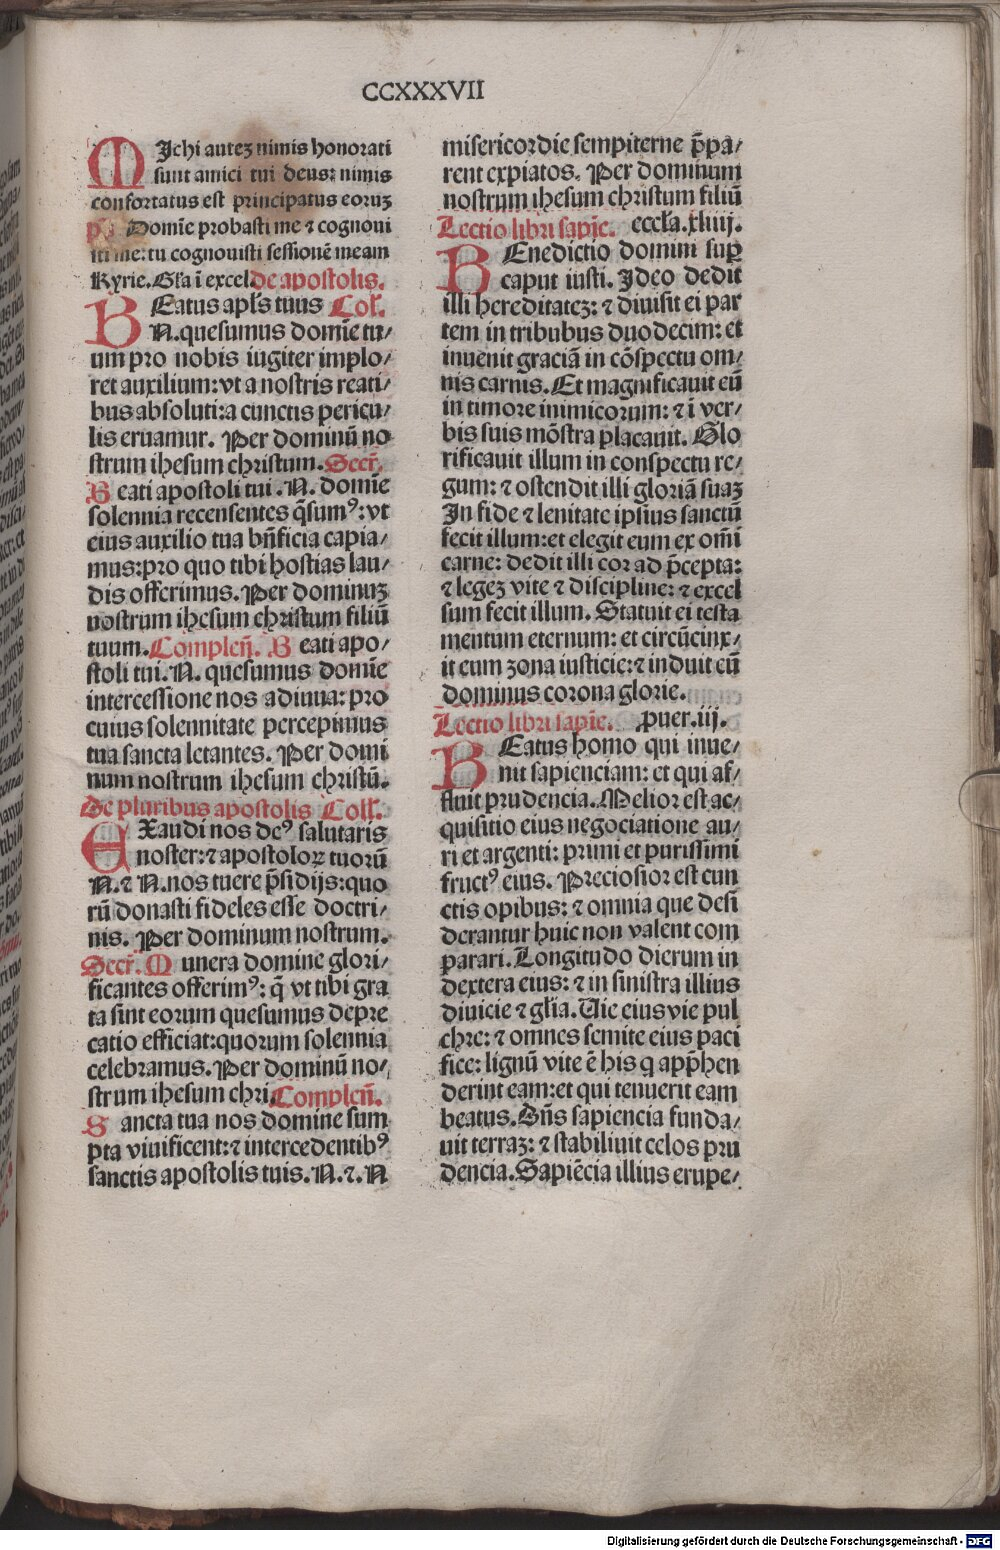 CCXXXVII
MIchi auteꝫ nimis honorati
sunt amici tui deus: nimis
confortatus est principatus eoruꝫ
Domīe probasti me ⁊ cognoui
sti me: tu cognouisti sessionē meam
Kyrie. Gl'a ī excel de apostolis.
BEatus apl's tuus Col'.
N. quesumus domīe tu/
um pro nobis iugiter implo/
ret auxilium: vt a nostris reati/
bus absoluti: a cunctis pericu/
lis eruamur. Per dominū no
strum ihesum christum. Secr̄.
Beati apostoli tui .N. domīe
solennia recensentes q̄sumꝰ: vt
eius auxilio tua bn̄ficia capia/
mus: pro quo tibi hostias lau/
dis offerimus. Per dominuꝫ
nostrum ihesum christum filiū
tuum. Complen̄. Beati apo/
stoli tui. N. quesumus domīe
intercessione nos adiuua: pro
cuius solennitate percepimus
tua sancta letantes. Per domi
num nostrum ihesum christū.
De pluribus apostolis Coll'.
EXaudi nos deꝰ salutaris
noster: ⁊ apostoloꝝ tuorū
N. ⁊ N. nos tuere p̄sidijs: quo
rū donasti fideles esse doctri/
nis. Per dominum nostrum.
Secr̄. Munera domine glori/
ficantes offerimꝰ: q̄ vt tibi gra
ta sint eorum quesumus depre
catio efficiat: quorum solennia
celebramus. Per dominū no/
strum ihesum chri. Complen̄.
Sancta tua nos domine sum
pta viuificent: ⁊ intercedentibꝰ
sanctis apostolis tuis. N. ⁊. N
misericordie sempiterne p̄pa/
rent expiatos. Per dominum
nostrum ihesum christum filiū
Lectio libri sapīe. eccl'a. xliiij.
BEnedictio domini suꝑ
caput iusti. Ideo dedit
illi hereditateꝫ: ⁊ diuisit ei par
tem in tribubus duodecim: et
inuenit graciā in cōspectu om/
nis carnis. Et magnificauit eū
in timore inimicorum: ⁊ ī ver/
bis suis mōstra placauit. Glo
rificauit illum in conspectu re/
gum: ⁊ ostendit illi gloriā suaꝫ
In fide ⁊ lenitate ipsius sanctū
fecit illum: et elegit eum ex om̄i
carne: dedit illi cor ad p̄cepta:
⁊ legeꝫ vite ⁊ discipline: ⁊ excel
sum fecit illum. Statuit ei testa
mentum eternum: et circūcinx/
it eum zona iusticie: ⁊ induit eū
dominus corona glorie.
Lectio libri sapīe. puer. iij.
BEatus homo qui inue/
nit sapienciam: et qui af/
fluit prudencia. Melior est ac/
quisitio eius negociatione au/
ri et argenti: primi et purissimi
fructꝰ eius. Preciosior est cun
ctis opibus: ⁊ omnia que desi
derantur huic non valent com
parari. Longitudo dierum in
dextera eius: ⁊ in sinistra illius
diuicie ⁊ gl'ia. Uie eius vie pul
chre: ⁊ omnes semite eius paci
fice: lignū vite ē his q app̄hen
derint eam: et qui tenuerit eam
beatus. Dn̄s sapiencia funda/
uit terraꝫ: ⁊ stabiliuit celos pru
dencia. Sapiēcia illius erupe/
Digitalisierung gefördert durch die Deutsche Forschungsgemeinschaft - DFG